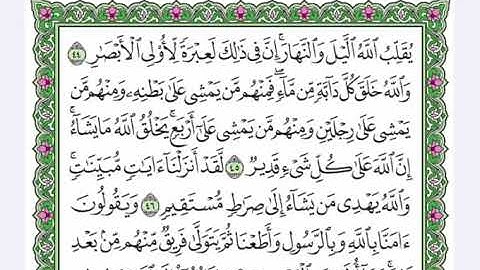 يُقَلِّبُ ٱللَّهُ ٱلَّيۡلَ وَٱلنَّهَارَۚ إِنَّ فِي ذَٰلِكَ لَعِبۡرَةٗ لِّأُوْلِي ٱلۡأَبۡصَٰرِ ٤٤
وَٱللَّهُ خَلَقَ كُلَّ دَآبَّةٖ مِّن مَّآءٖۖ فَمِنۡهُم مَّن يَمۡشِي عَلَىٰ بَطۡنِهِۦ وَمِنۡهُم مَّن
يَمۡشِي عَلَىٰ رِجۡلَيۡنِ وَمِنۡهُم مَّن يَمۡشِي عَلَىٰٓ أَرۡبَعٖۚ يَخۡلُقُ ٱللَّهُ مَا يَشَآءُۚ
إِنَّ ٱللَّهَ عَلَىٰ كُلِّ شَيۡءٖ قَدِيرٞ ٤٥ لَّقَدۡ أَنزَلۡنَآ ءَايَٰتٖ مُّبَيِّنَٰتٖۚ
وَٱللَّهُ يَهۡدِي مَن يَشَآءُ إِلَىٰ صِرَٰطٖ مُّسۡتَقِيمٖ ٤٦ وَيَقُولُونَ
ءَامَنَّا بِٱللَّهِ وَبِٱلرَّسُولِ وَأَطَعۡنَا ثُمَّ يَتَوَلَّىٰ فَرِيقٞ مِّنۡهُم مِّنۢ بَعۡدِ